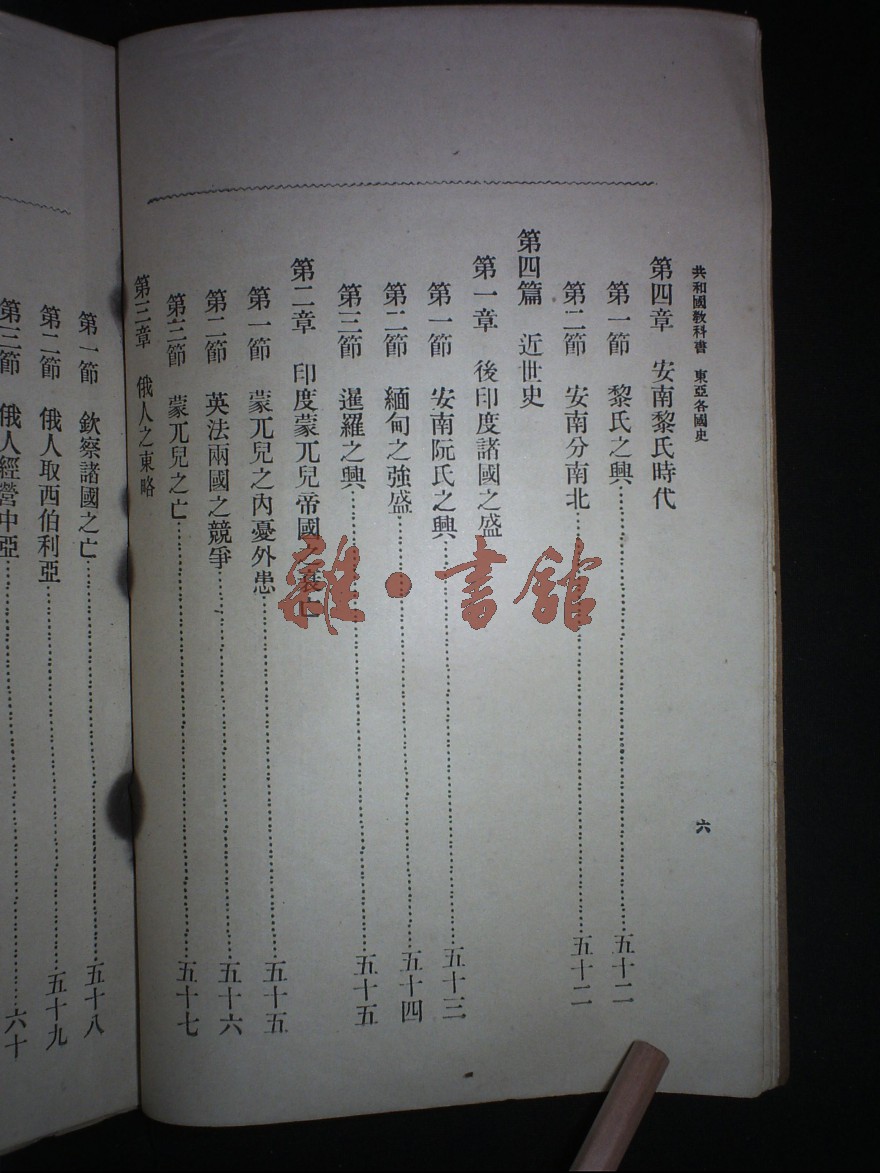 共和國教科書　東亞各國史
六
第四章　安南黎氏時代
第一節　黎氏之興⋯⋯五十二
第二節　安南分南北⋯⋯五十二
第四篇　近世史
第一章　後印度諸國之盛
第一節　安南阮氏之興⋯⋯五十三
第二節　緬甸之強盛⋯⋯五十四
第三節　暹羅之興⋯⋯五十五
第二章　印度蒙兀兒帝國之衰亡
第一節　蒙兀兒之內憂外患⋯⋯五十五
第二節　英法兩國之競爭⋯⋯五十六
第三節　蒙兀兒之亡⋯⋯五十七
第三章　俄人之東略
第一節　欽察諸國之亡⋯⋯五十八
第二節　俄人取西伯利亞⋯⋯五十九
第三節　俄人經營中亞⋯⋯六十
雜·書館